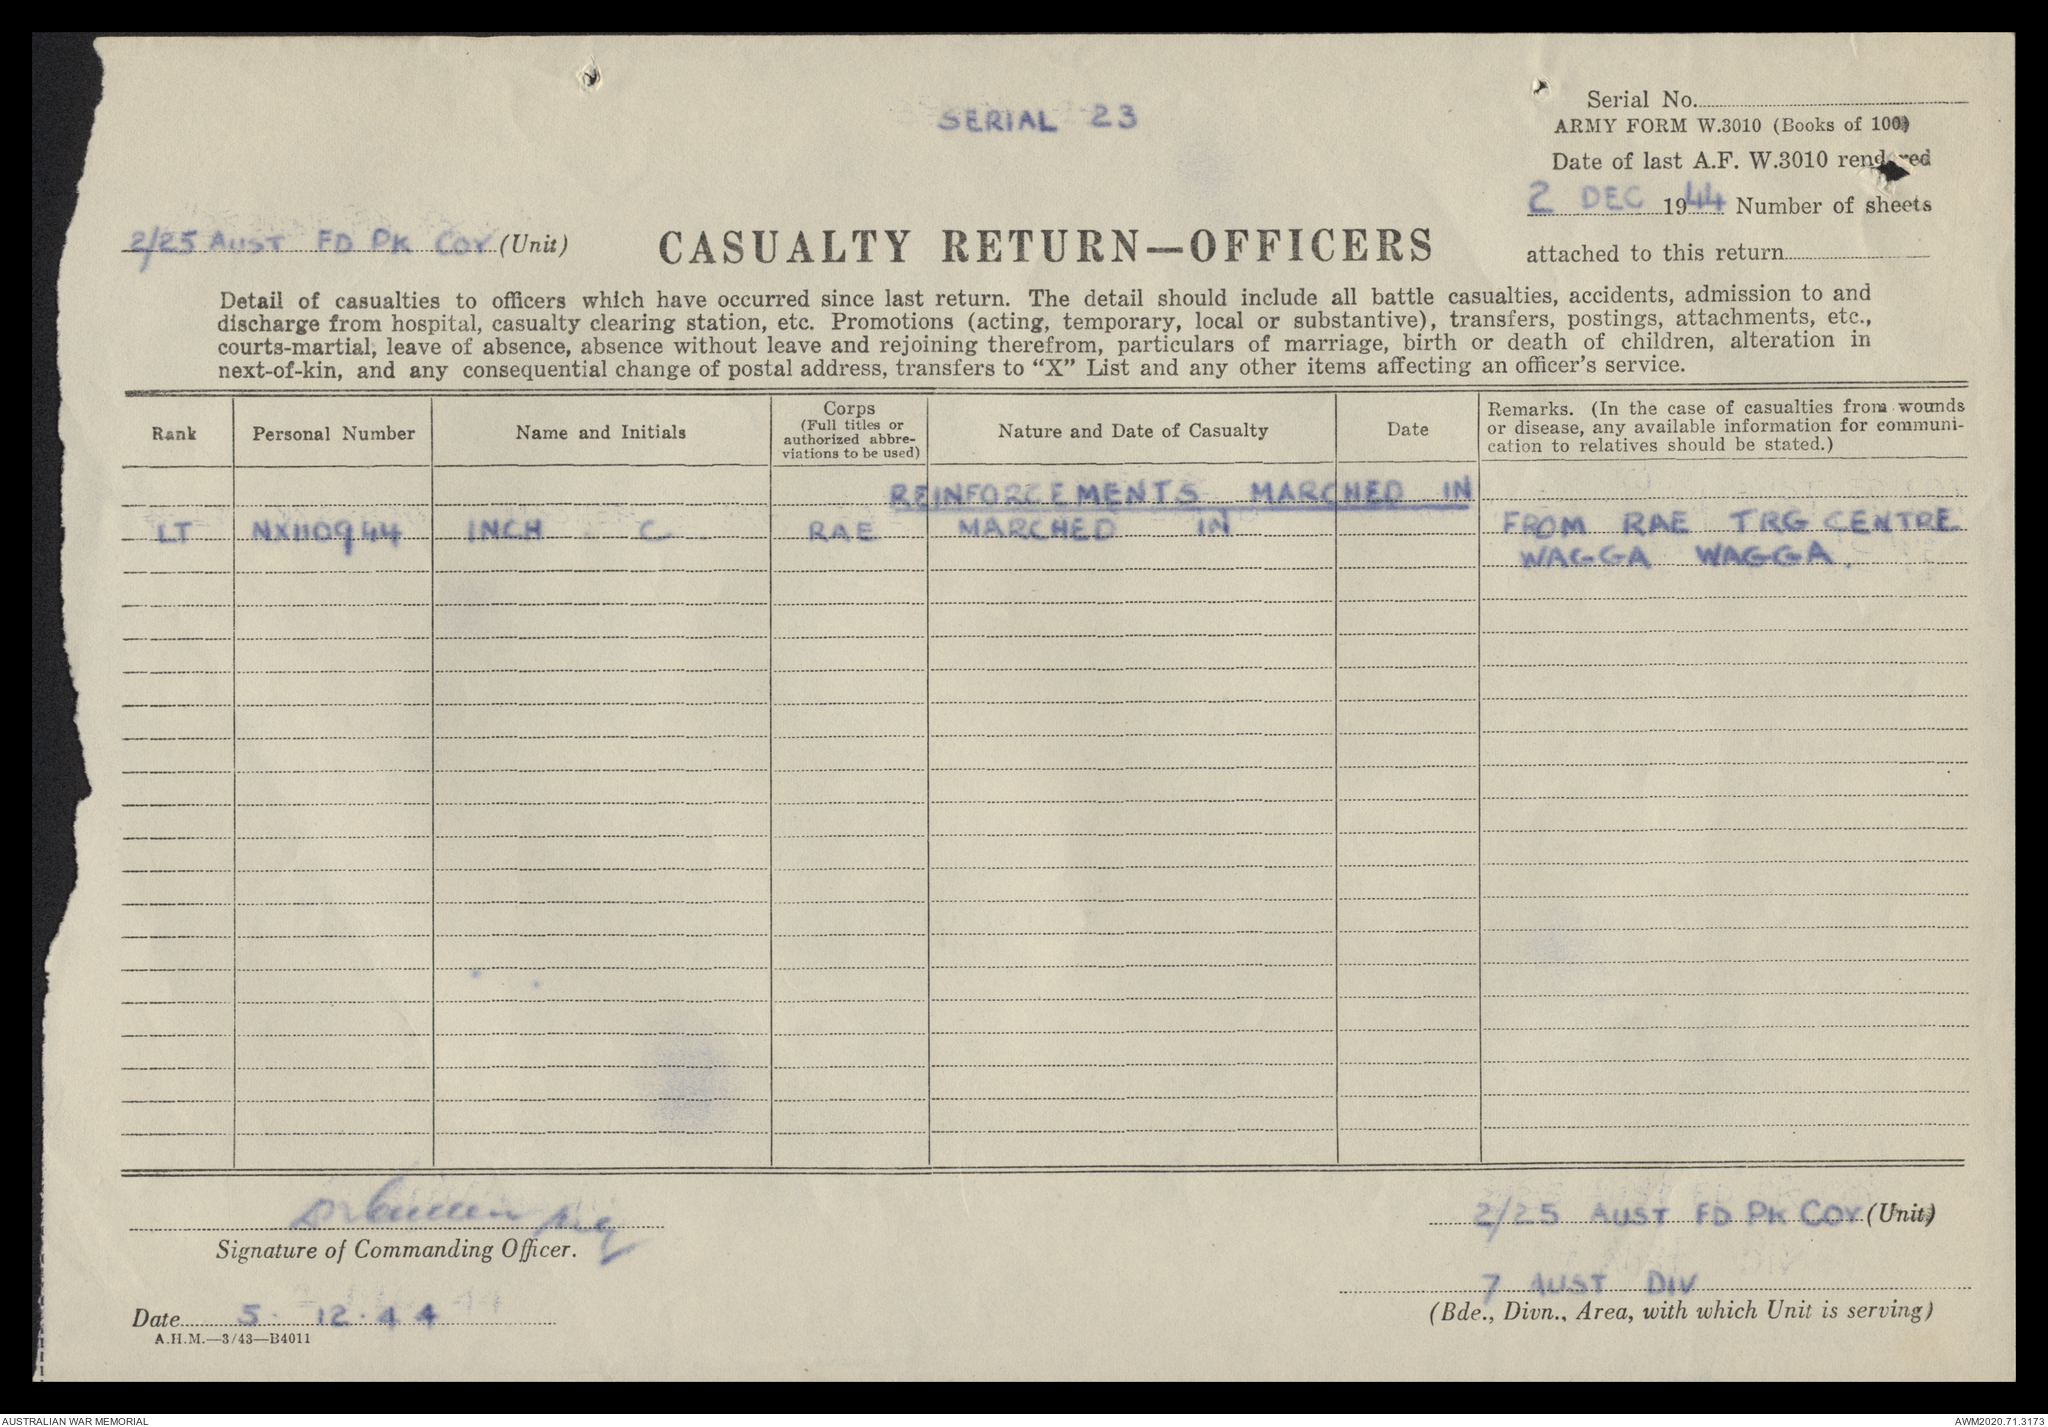 SERIAL 23
Serial No.
ARMY FORM W.3010 (Books of 100)
Date of last A.F. W.3010 rendered
2 DEC 1944 Number of sheets
attached to this return
2/25 AUST FD PK COY (Unit)
CASUALTY RETURN—OFFICERS
Detail of casualties to officers which have occurred since last return. The detail should include all battle casualties, accidents, admission to and
discharge from hospital, casualty clearing station, etc. Promotions (acting, temporary, local or substantive), transfers, postings, attachments, etc.,
courts-martial, leave of absence, absence without leave and rejoining therefrom, particulars of marriage, birth or death of children, alteration in
next-of-kin, and any consequential change of postal address, transfers to "X" List and any other items affecting an officer's service.
Rank
Personal Number
Name and Initials
Corps
(Full titles or
authorized abbre-
viations to be used)
Nature and Date of Casualty
Date
Remarks. (In the case of casualties from wounds
or disease, any available information for communi-
cation to relatives should be stated.)
REINFORCEMENTS MARCHED IN
LT NX110944 INCH C. RAE MARCHED IN FROM RAE TRG CENTRE
WAGGA WAGGA.
Signature of Commanding Officer.
Date 5. 12. 44
A.H.M.—3/43—B4011
2/25 AUST FD PK COY (Unit)
7 AUST DIV
(Bde., Divn., Area, with which Unit is serving)
AUSTRALIAN WAR MEMORIAL
AWM2020.71.3173